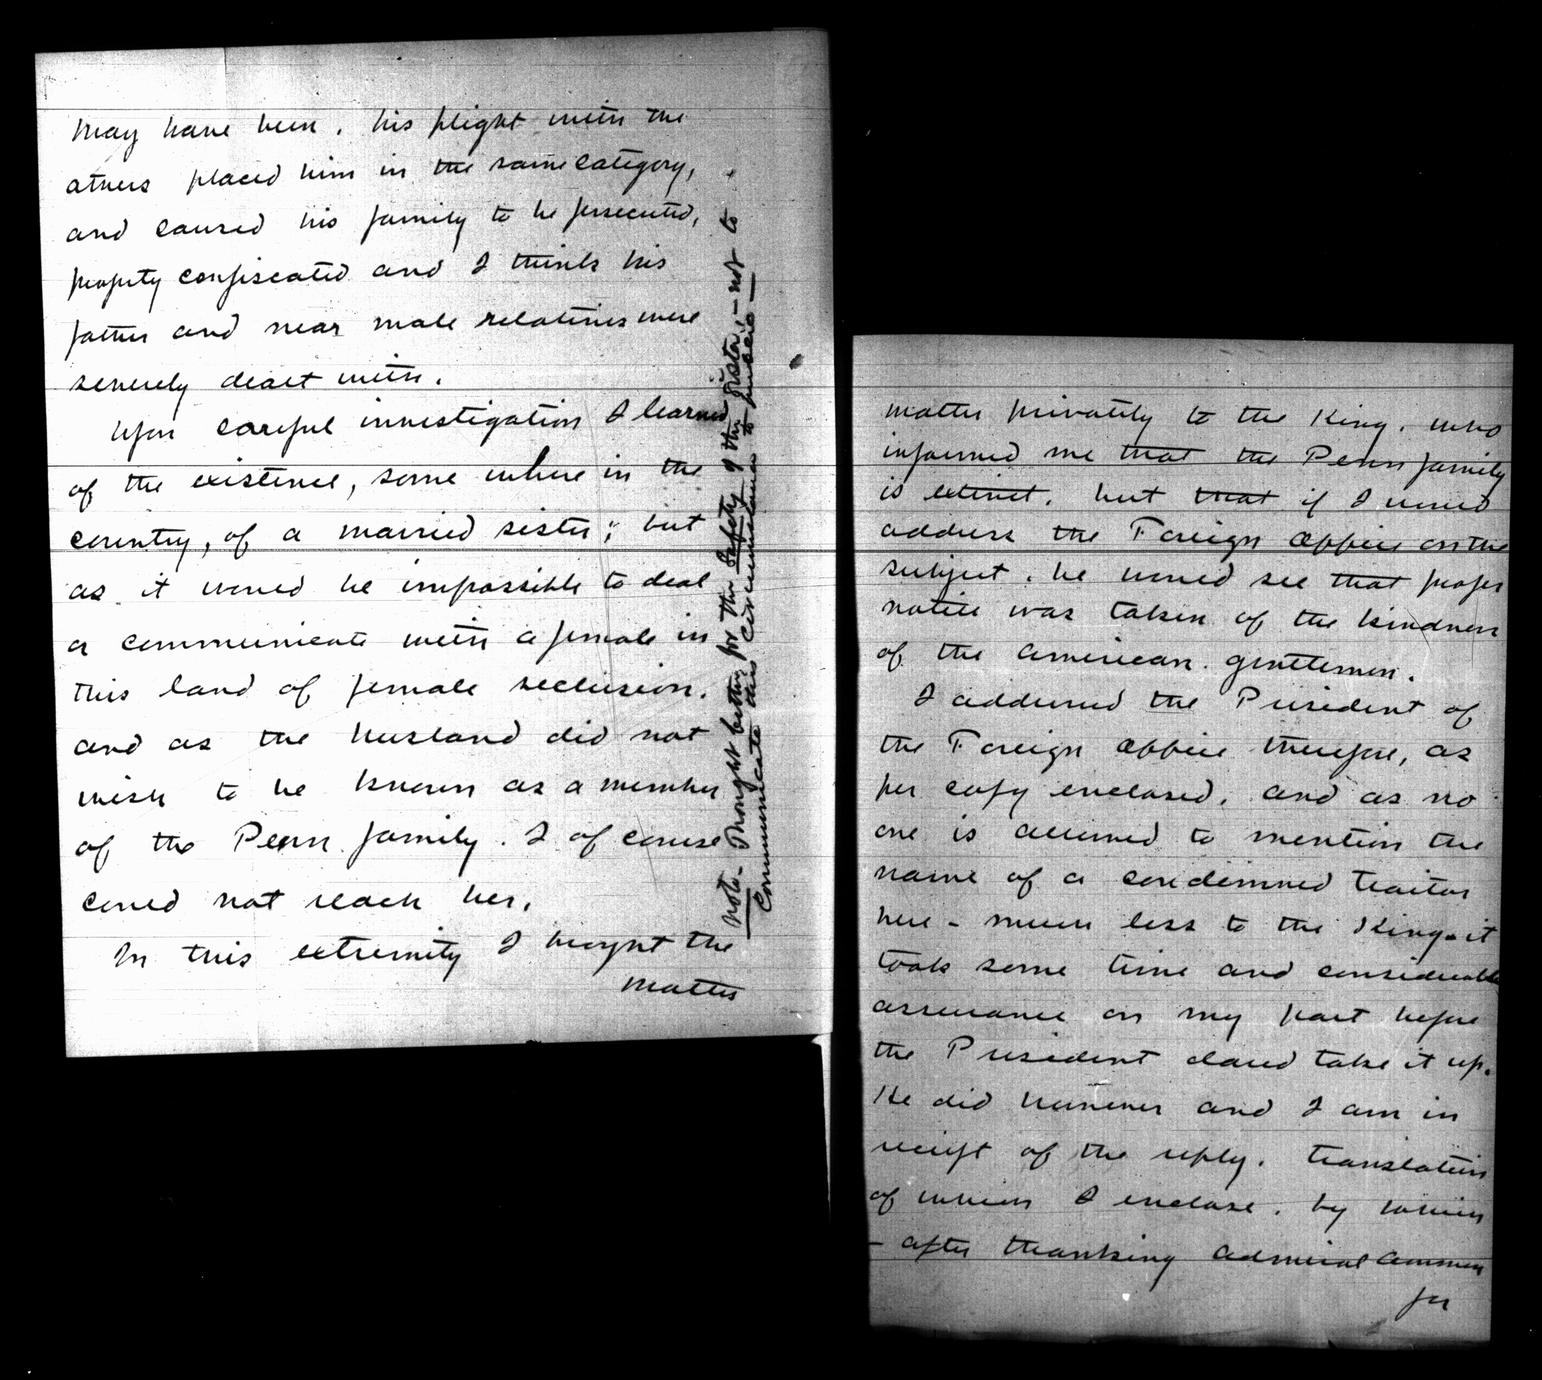 may have been, his flight with the
others placed him in the same category,
and caused his family to be persecuted,
property confiscated and I think his
father and near male relatives were
severely dealt with.
Upon careful investigation I learned
of the existence, some where in the
country, of a married sister; but
as it would be impossible to deal
or communicate with a female in
this land of female seclusion,
and as the husband did not
wish to be known as a member
of the Penn family, I of course
could not reach her.
In this extremity I brought the
matter
note - Thought better for the safety of the sister, - not to
communicate this circumstance to public -
matter privately to the King, who
informed me that the Penn family
is extinct, but that if I would
address the Foreign office on the
subject, he would see that proper
notice was taken of the kindness
of the American gentlemen.
I addressed the President of
the Foreign office therefore, as
per copy enclosed, and as no
one is allowed to mention the
name of a condemned traitor
here - much less to the King - it
took some time and considerable
assurance on my part before
the President dared take it up.
He did however and I am in
receipt of the reply, translation
of which I enclose, by which
- after thanking Admiral Ammen
for